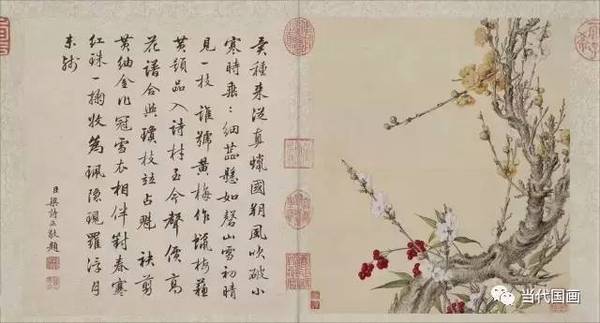 種来從真蠟國朔風吹破小
寒時垂〻細蕊懸如磬山雪初晴
見一枝誰號黄梅作蠟梅蘓
黄題品入詩材至今聲價高
花譜合與瓊枝並占魁 袂剪
黄紬金作冠雪衣相伴對春寒
紅珠一掬收為珮隱現羅浮月
未殘
臣梁詩正敬題
当代国画